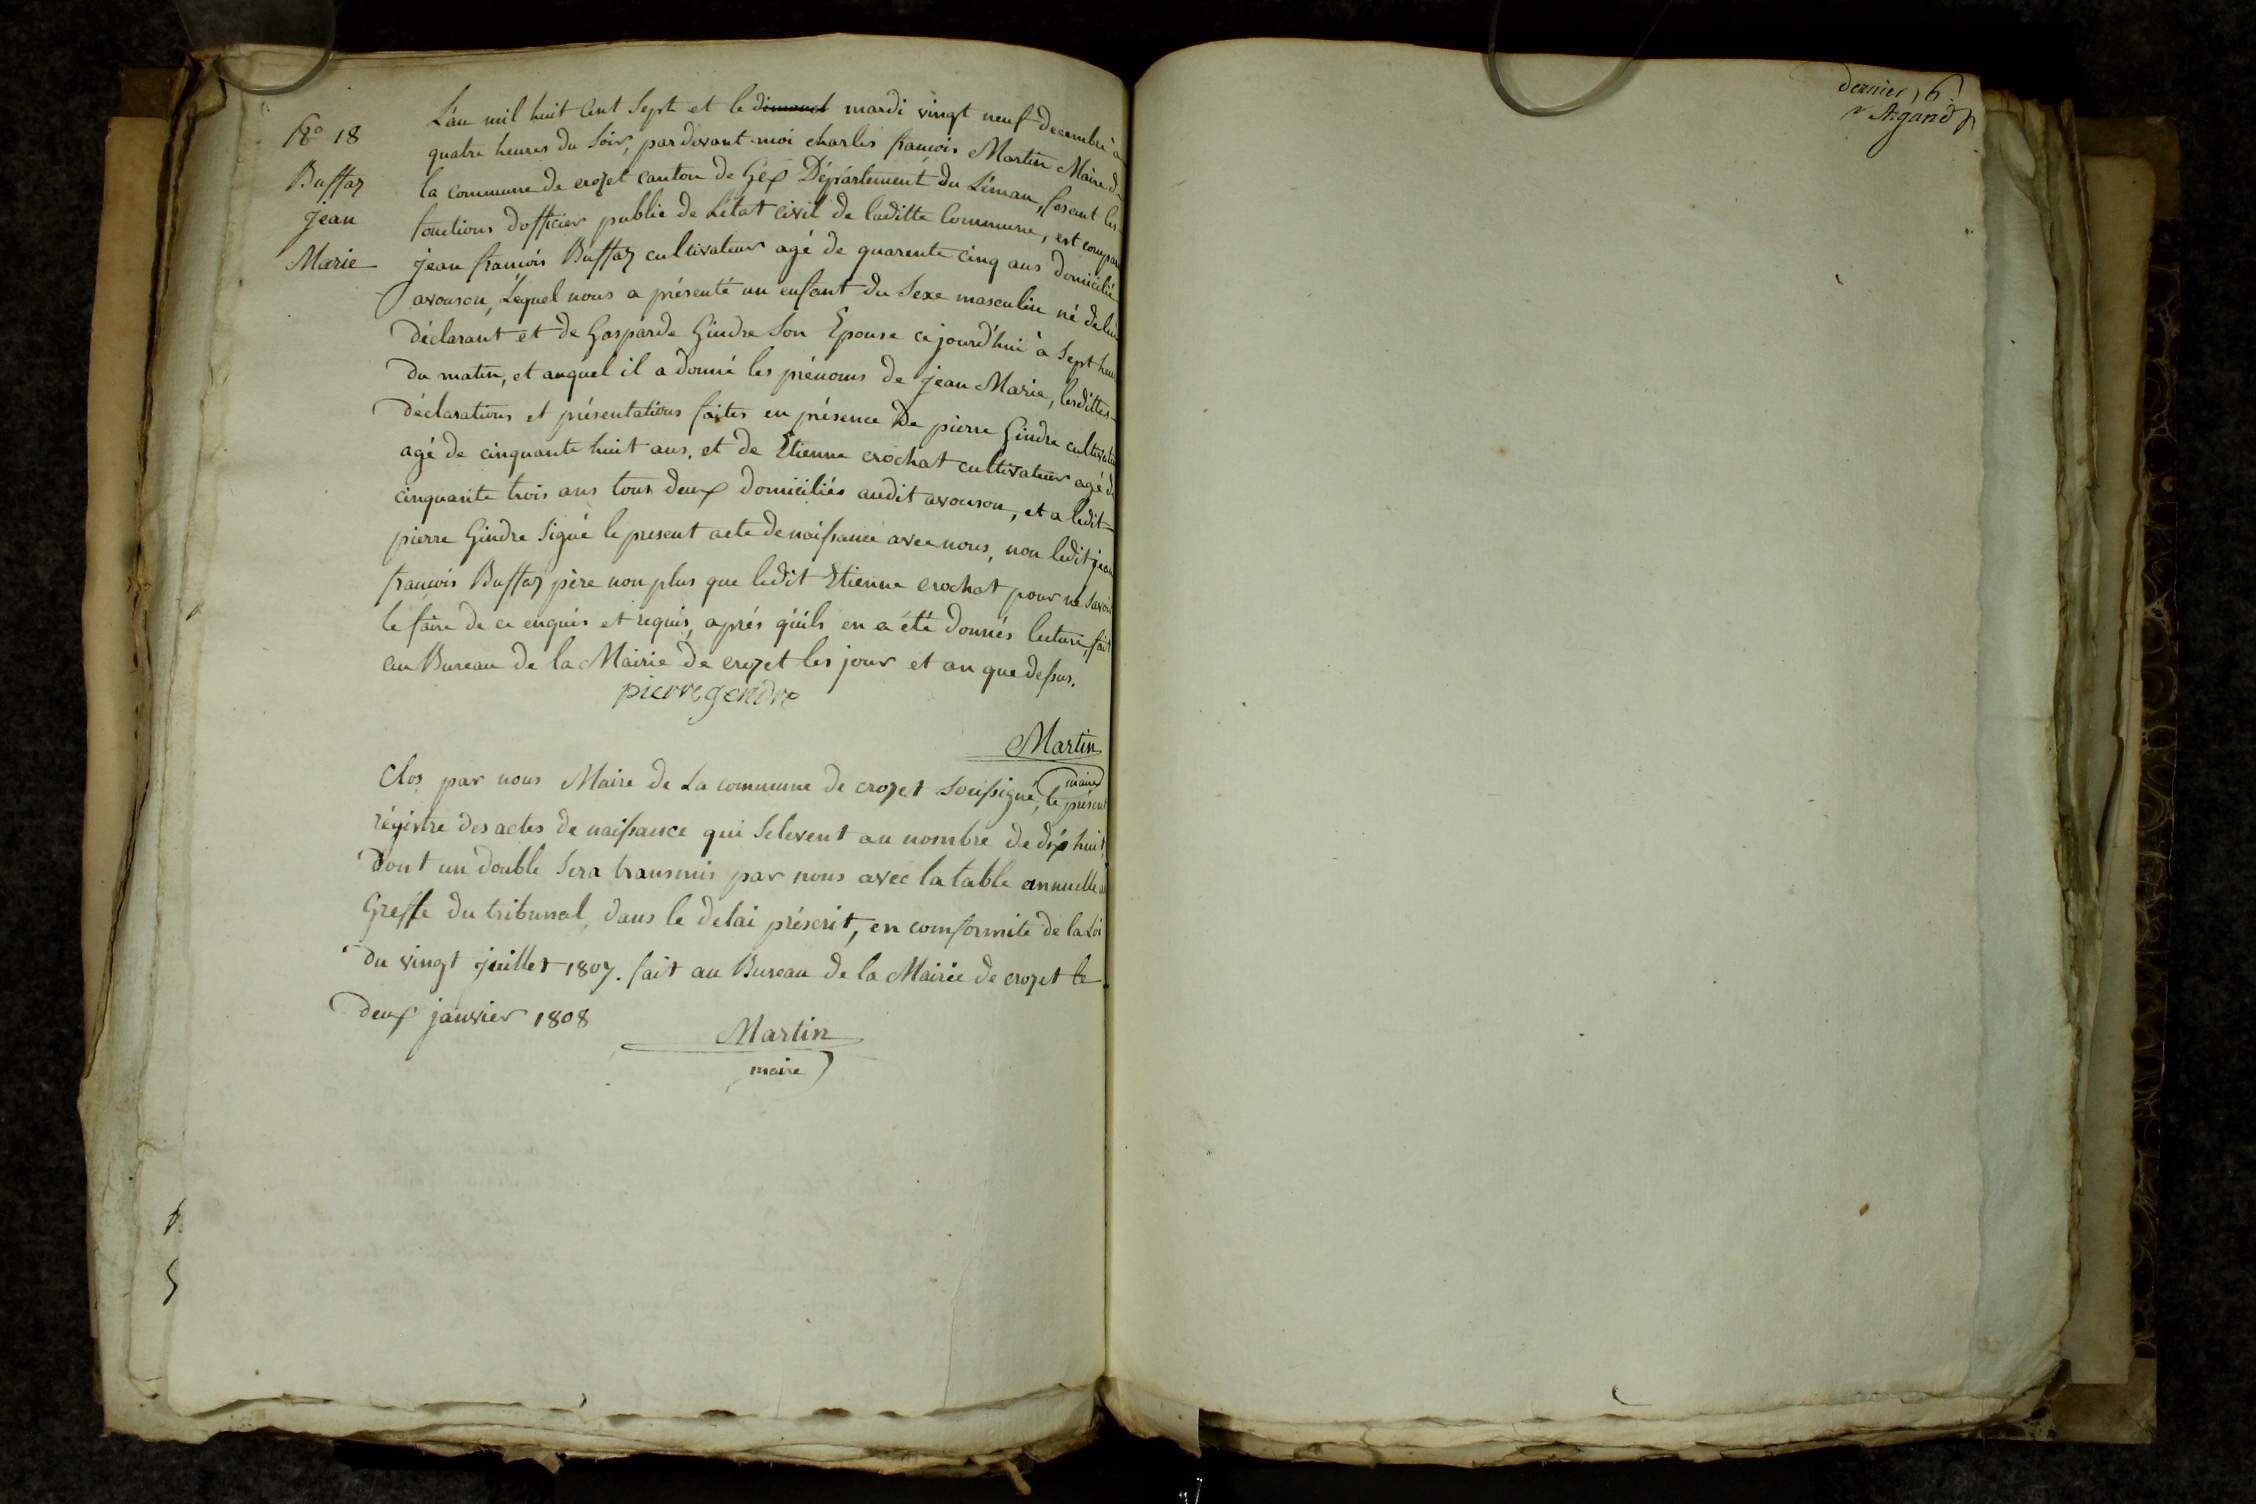 N.o 18
Buffaz
jean
Marie
L'an mil huit Cent Sept et le dimanch mardi vingt neuf decembre à
quatre heures du Soir, par devant moi charles francois Martin Maire de
la commune de crozet canton de Gex Département du Léman, fesant les
fonctions d'officier public de L'état civil de laditte Commune, est comparu
jean francois Buffaz cultivateur agé de quarente cinq ans domicilié
avouson, Lequel nous a présenté un enfant du Sexe masculin né de lui
Déclarant et de Gasparde Gindre Son Epouse cejourd'hui à Sept heures
du matin, et auquel il a donné les prénoms de jean Marie, lesdittes
déclarations et présentations faites en présence De pierre Gindre cultivateur
agé de cinquante huit ans, et de Etienne crochat cultivateur agé de
cinquante trois ans tous deux domiciliés audit avouson, et a ledit
pierre Gindre Signé le present acte de naissance avec nous, non ledit jean
francois Buffaz père non plus que ledit Etienne crochat pour ne Savoir
le faire de ce enquis et requis, aprés qu'ils en a été donnés lecture, fait
au Bureau de la Mairie de crozet les jour et an que dessus.
pierre gendre
Martin
maire
Clos par nous Maire de La commune de crozet Soussigné, le présent
régistre des actes de naissance qui Selevent au nombre de dix huit,
dont un double Sera transmis par nous avec la table annuelle au
Greffe du tribunal, dans le delai préscrit, en comformité de la Loi
du vingt juillet 1807. fait au Bureau de la Mairie de crozet le
deux janvier 1808
Martin
maire
dernier 16.
Argand